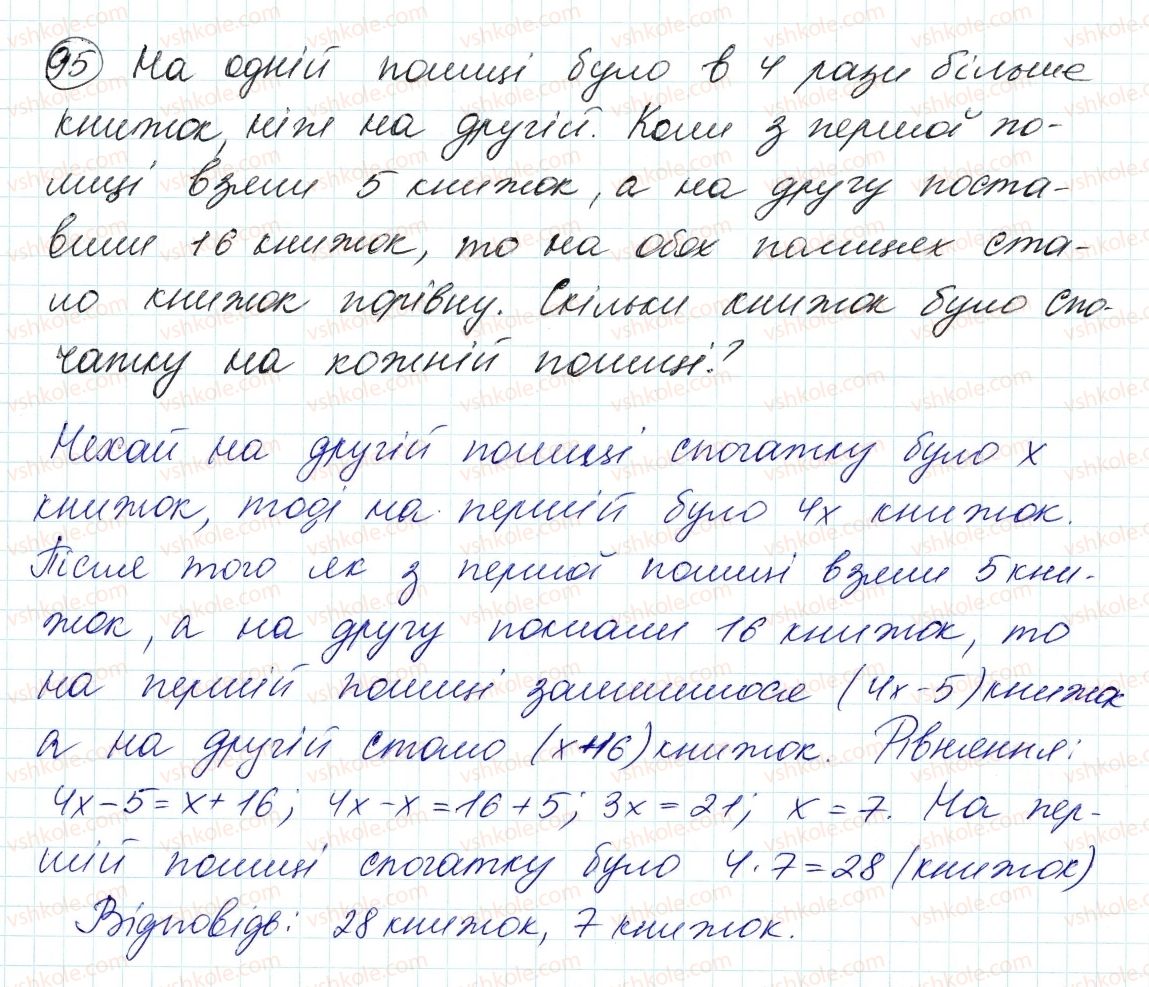 95 На одній полиці було в 4 рази більше
книжок, ніж на другій. Коли з першої по-
лиці взяли 5 книжок, а на другу поста-
вили 16 книжок, то на обох полицях ста-
ло книжок порівну. Скільки книжок було спо-
чатку на кожній полиці?
Нехай на другій полиці спочатку було x
книжок, тоді на першій було 4x книжок.
Після того як з першої полиці взяли 5 кни-
жок, а на другу поклали 16 книжок, то
на першій полиці залишилося (4x-5) книжок
а на другій стало (x+16) книжок. Рівняння:
4x-5=x+16; 4x-x=16+5; 3x=21; x=7. На пер-
шій полиці спочатку було 4·7=28 (книжок)
Відповідь: 28 книжок, 7 книжок.